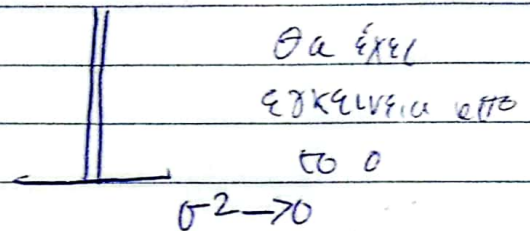 θα έχει
εγκεινεια από
το 0
σ²→0